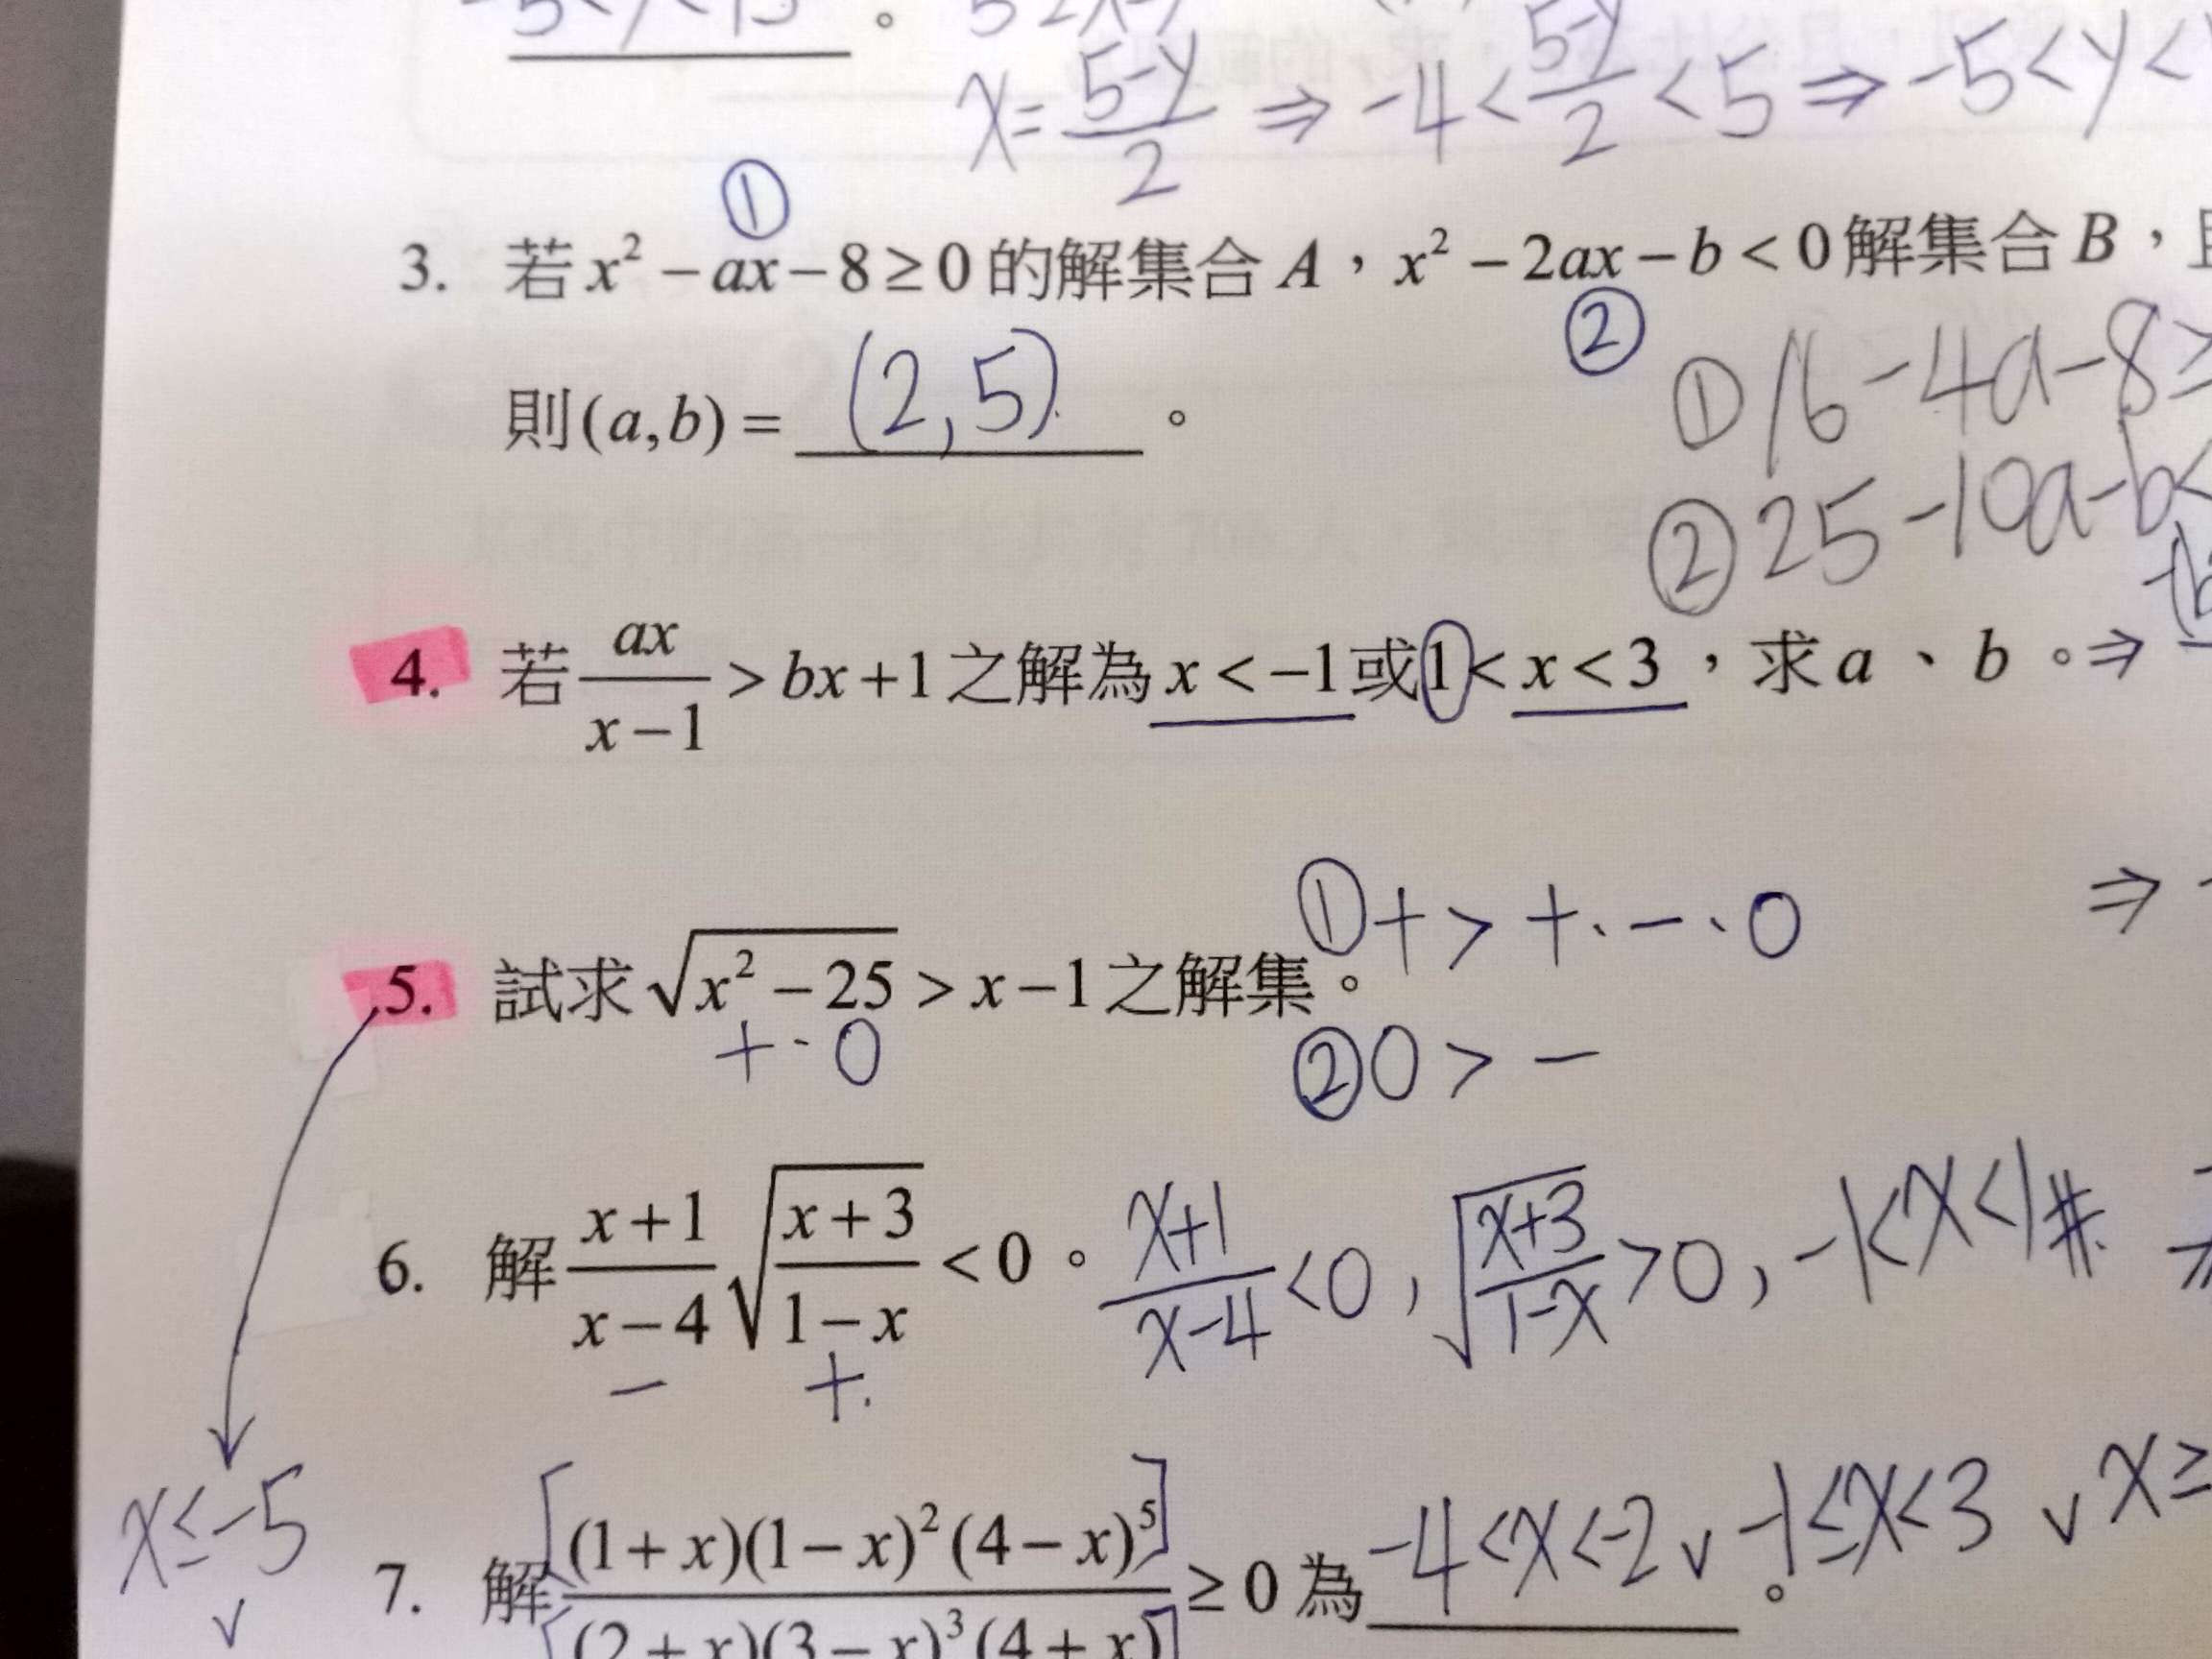 -5<y<15。 5=2x+y
x=\frac{5-y}{2} ⇒ -4<\frac{5-y}{2}<5 ⇒ -5<y<
①
3. 若 x² − ax − 8 ≥ 0 的解集合 A，x² − 2ax − b < 0 解集合 B，且
②
① 16-4a-8≥
則(a,b) = (2,5)。
② 25-10a-b<
4. 若 \frac{ax}{x-1} > bx+1 之解為 x < −1 或 1 < x < 3，求 a、b。⇒
① + > +、-、0 ⇒
5. 試求 \sqrt{x²−25} > x−1 之解集。
+、0
② 0 > -
6. 解 \frac{x+1}{x-4}\sqrt{\frac{x+3}{1-x}} < 0。 \frac{x+1}{x-4}<0, \sqrt{\frac{x+3}{1-x}}>0, -1<x<1 #
- +
x≤-5
∨
7. 解 \frac{[(1+x)(1−x)²(4−x)⁵]}{[(2+x)(3−x)³(4+x)]} ≥ 0 為 -4<x<-2 ∨ -1≤x<3 ∨ x≥。